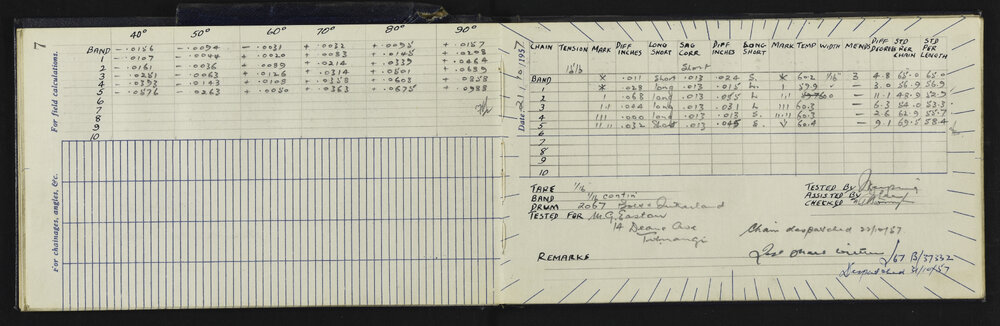 7
40° 50° 60° 70° 80° 90°
For field calculations.
BAND - .0156 - .0094 - .0031 + .0032 + .0095 + .0157
1 - .0107 - .0044 + .0020 + .0083 + .0145 + .0208
2 - .0161 - .0036 + .0089 + .0214 + .0339 + .0464
3 - .0251 - .0063 + .0126 + .0314 + .0501 + .0689
4 - .0393 - .0143 + .0108 + .0358 + .0608 + .0858
5 - .0576 - .0263 + .0050 + .0363 + .0675 + .0988
6
7
8
9
10
For chainages, angles, &c.
Date: 21/10/1957
CHAIN TENSION MARK DIFF INCHES LONG SHORT SAG CORR. DIFF INCHES LONG SHORT MARK TEMP WIDTH MENDS DIFF DEGREE STD PER CHAIN STD PER LENGTH
15lb Short
BAND * .011 short .013 .024 S. * 60.2 1/16" 3 4.8 65.0 65.0
1 * .028 long .013 .015 L. 1 59.9 - 3.0 56.9 56.9
2 1 .068 long .013 .055 L 1.1 60.0 - 11.1 48.9 52.9
3 1.1 .044 long .013 .031 L 111 60.3 - 6.3 54.0 53.3
4 111 .000 long .013 .013 S. 11.11 60.3 - 2.6 62.9 55.7
5 11.11 .032 Short .013 .045 S. V 60.4 - 9.1 69.5 58.4
6
7
8
9
10
TAPE 1/16"
BAND 1/16 contin
DRUM 2067 & Sutherland
TESTED FOR M.G. Easton
14 Deane Ave
TESTED BY
ASSISTED BY
CHECKED
Chain despatched 22/10/57.
REMARKS
67 B/37332
Despatched 31/10/57